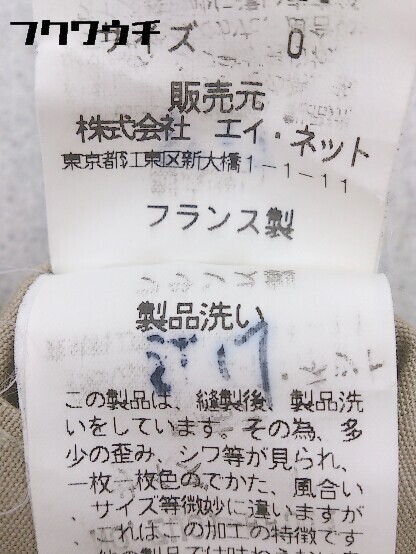 フクワウチ
サイズ 0
販売元
株式会社 エイ・ネット
東京都江東区新大橋1-1-11
フランス製
製品洗い
この製品は、縫製後、製品洗
いをしています。その為、多
少の歪み、シワ等が見られ、
一枚一枚色のでかた、風合い
、サイズ等微妙に違いますが
、これはこの加工の特徴です